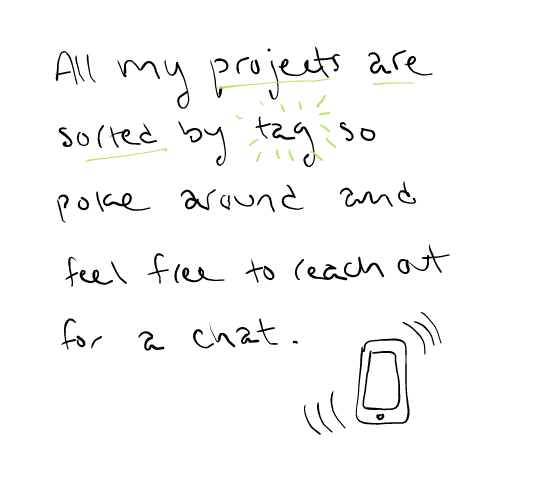 All my projects are
sorted by tag so
poke around and
feel free to reach out
for a chat.